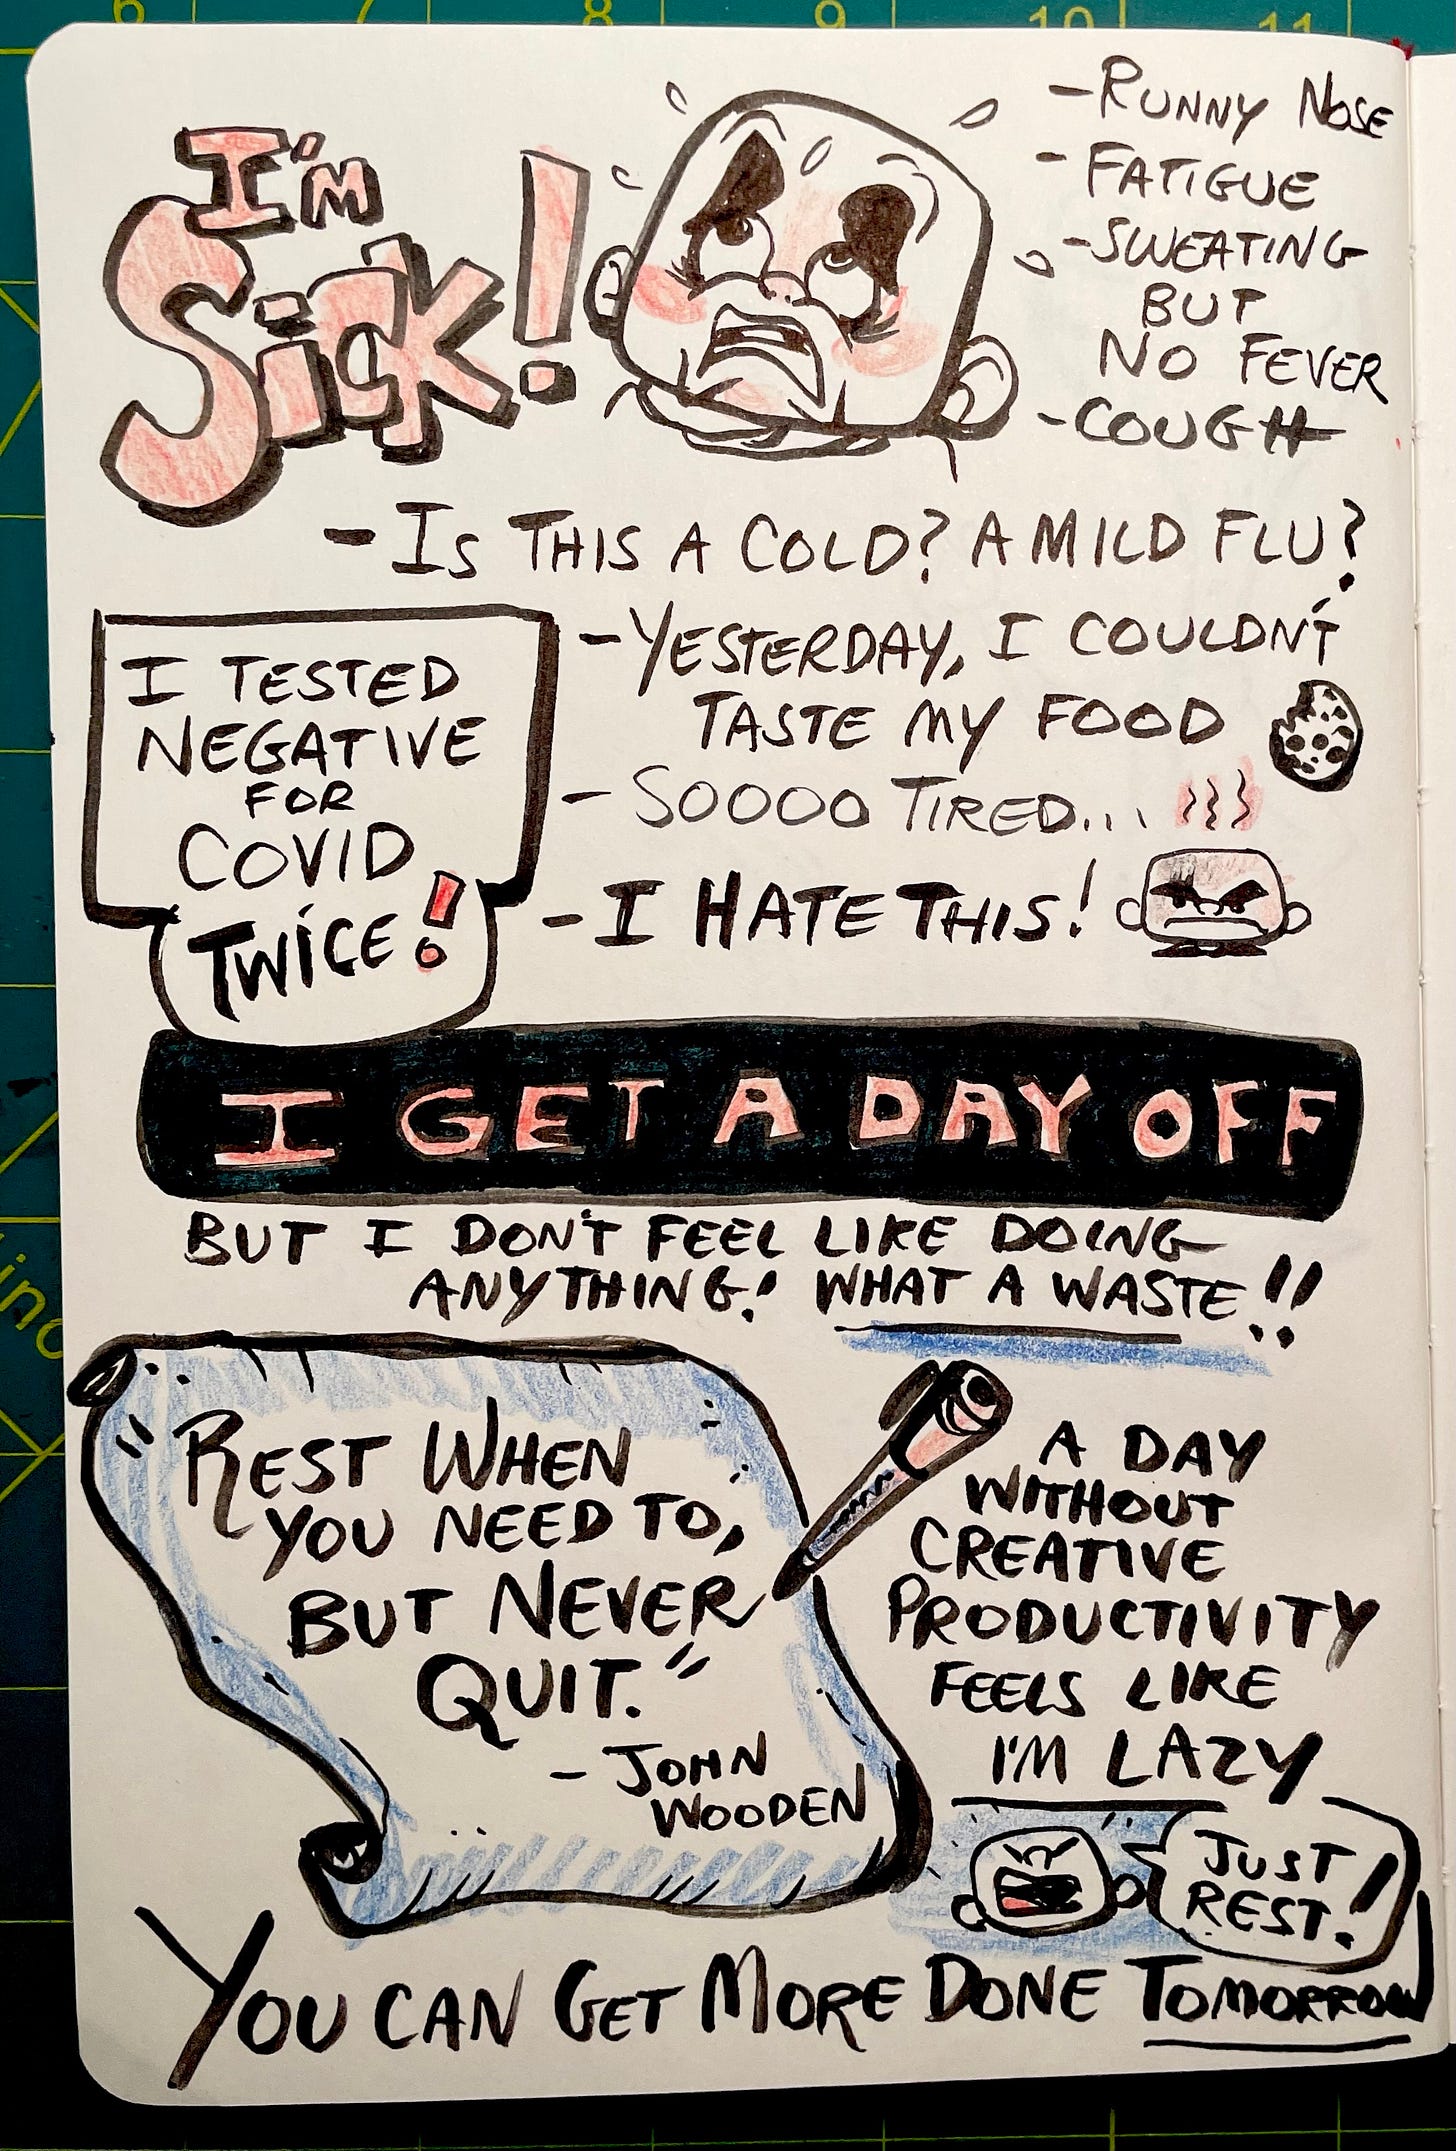 6 7 8 9 10 11
I'm
Sick!
- RUNNY NOSE
- FATIGUE
- SWEATING
BUT
NO FEVER
- COUGH
- IS THIS A COLD? A MILD FLU?
I TESTED
NEGATIVE
FOR
COVID
TWICE!
- YESTERDAY, I COULDN'T
TASTE MY FOOD
- SOOOO TIRED...
- I HATE THIS!
I GET A DAY OFF
BUT I DON'T FEEL LIKE DOING
ANYTHING! WHAT A WASTE!!
"REST WHEN
YOU NEED TO,
BUT NEVER
QUIT."
- JOHN
WOODEN
A DAY
WITHOUT
CREATIVE
PRODUCTIVITY
FEELS LIKE
I'M LAZY
JUST
REST!
YOU CAN GET MORE DONE TOMORROW